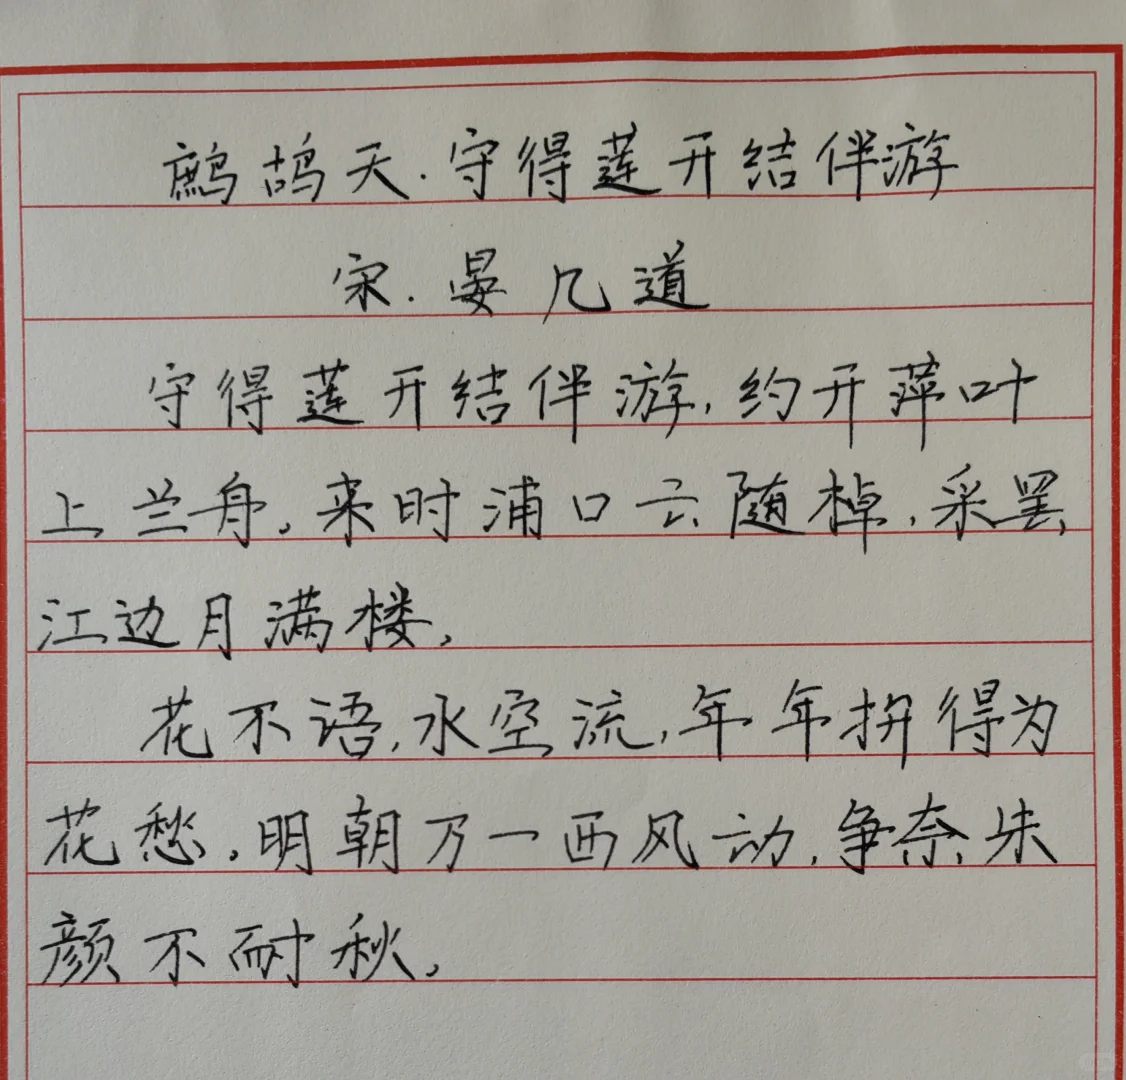 鹧鸪天·守得莲开结伴游
宋·晏几道
守得莲开结伴游,约开萍叶
上兰舟。来时浦口云随棹,采罢
江边月满楼,
花不语,水空流,年年拚得为
花愁。明朝万一西风动,争奈朱
颜不耐秋,